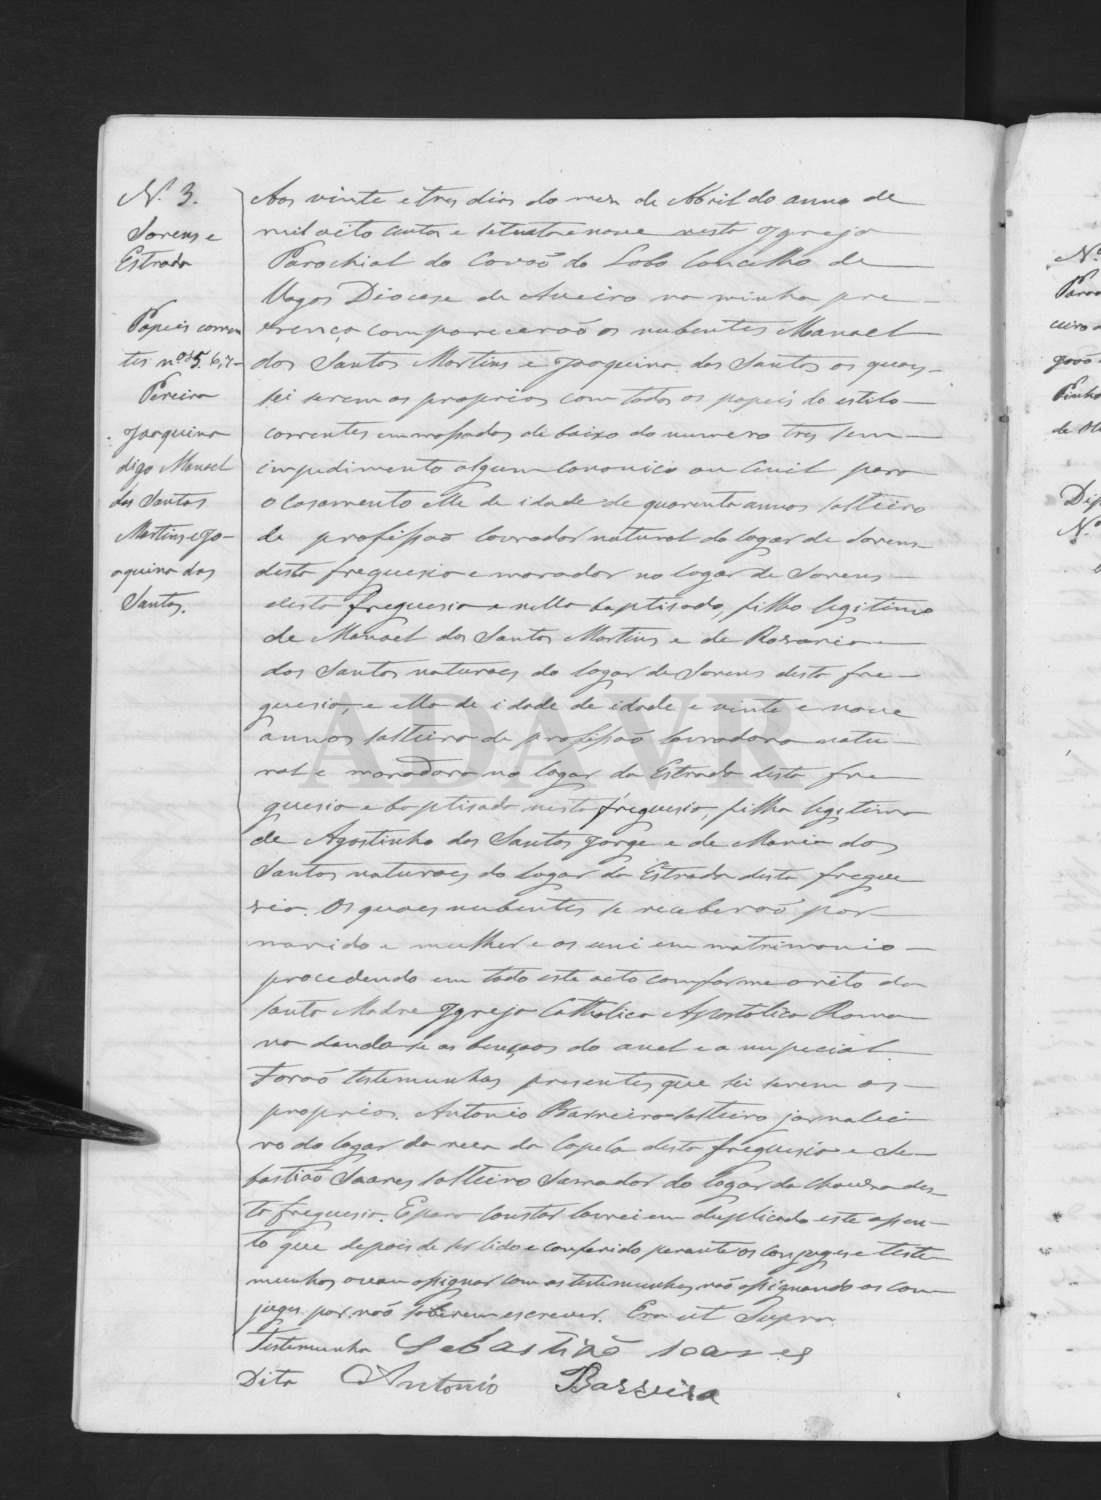 N.º 3.
Sorens e
Estrada
Papeis corren
tes n.os 5. 6, 7-
Pereira
Joaquina
digo Manoel
dos Santos
Martins e Jo-
aquina dos
Santos.
Aos vinte e tres dias do mez de Abril do anno de
mil oito centos e setenta e nove nesta Igreja
Parochial do Covão do Lobo Concelho de
Vagos Diocese de Aveiro na minha pre-
zença comparecerão os nubentes Manoel
dos Santos Martins e Joaquina dos Santos os quaes
sei serem os proprios com todos os papeis do estilo
correntes emmassados debaixo do numero tres sem
impedimento algum canonico ou civil para
o casamento elle de idade de quarenta annos solteiro
de profissão lavrador natural do lugar de Sorens
desta freguesia e morador no logar de Sorens
desta freguesia e nella baptisado, filho legitimo
de Manoel dos Santos Martins e de Rosaria
dos Santos naturaes do logar de Sorens desta fre-
guesia, e ella de idade de idade e vinte e nove
annos solteira de profissão lavradora natu-
ral e moradora no logar da Estrada desta fre
guesia e baptisada nesta freguesia, filha legitima
de Agostinho dos Santos Jorge e de Maria dos
Santos naturaes do logar da Estrada desta fregue
sia. Os quaes nubentes se receberão por
marido e mulher e os uni em matrimonio
procedendo em todo este acto conforme o rito da
santa Madre Igreja Catholica Apostolica Roma
na dando-se as bençaos do anel e a nupecial.
Forão testemunhas presentes que sei serem os
proprios. Antonio Barreira solteiro jornalei
ro do logar da da Capela desta freguesia e Se-
bastião Soares solteiro Serrador do logar da Chousa des-
ta freguesia. E para constar lavrei em duplicado este assen-
to que depois de ser lido e conferido perante os conjuges e teste
munhas o vou assignar com as testemunhas não assignando os con-
juges por não saberem escrever. Era ut Supra.
Testemunha Sebastião soares
Dita Antonio Barreira
ADAVR